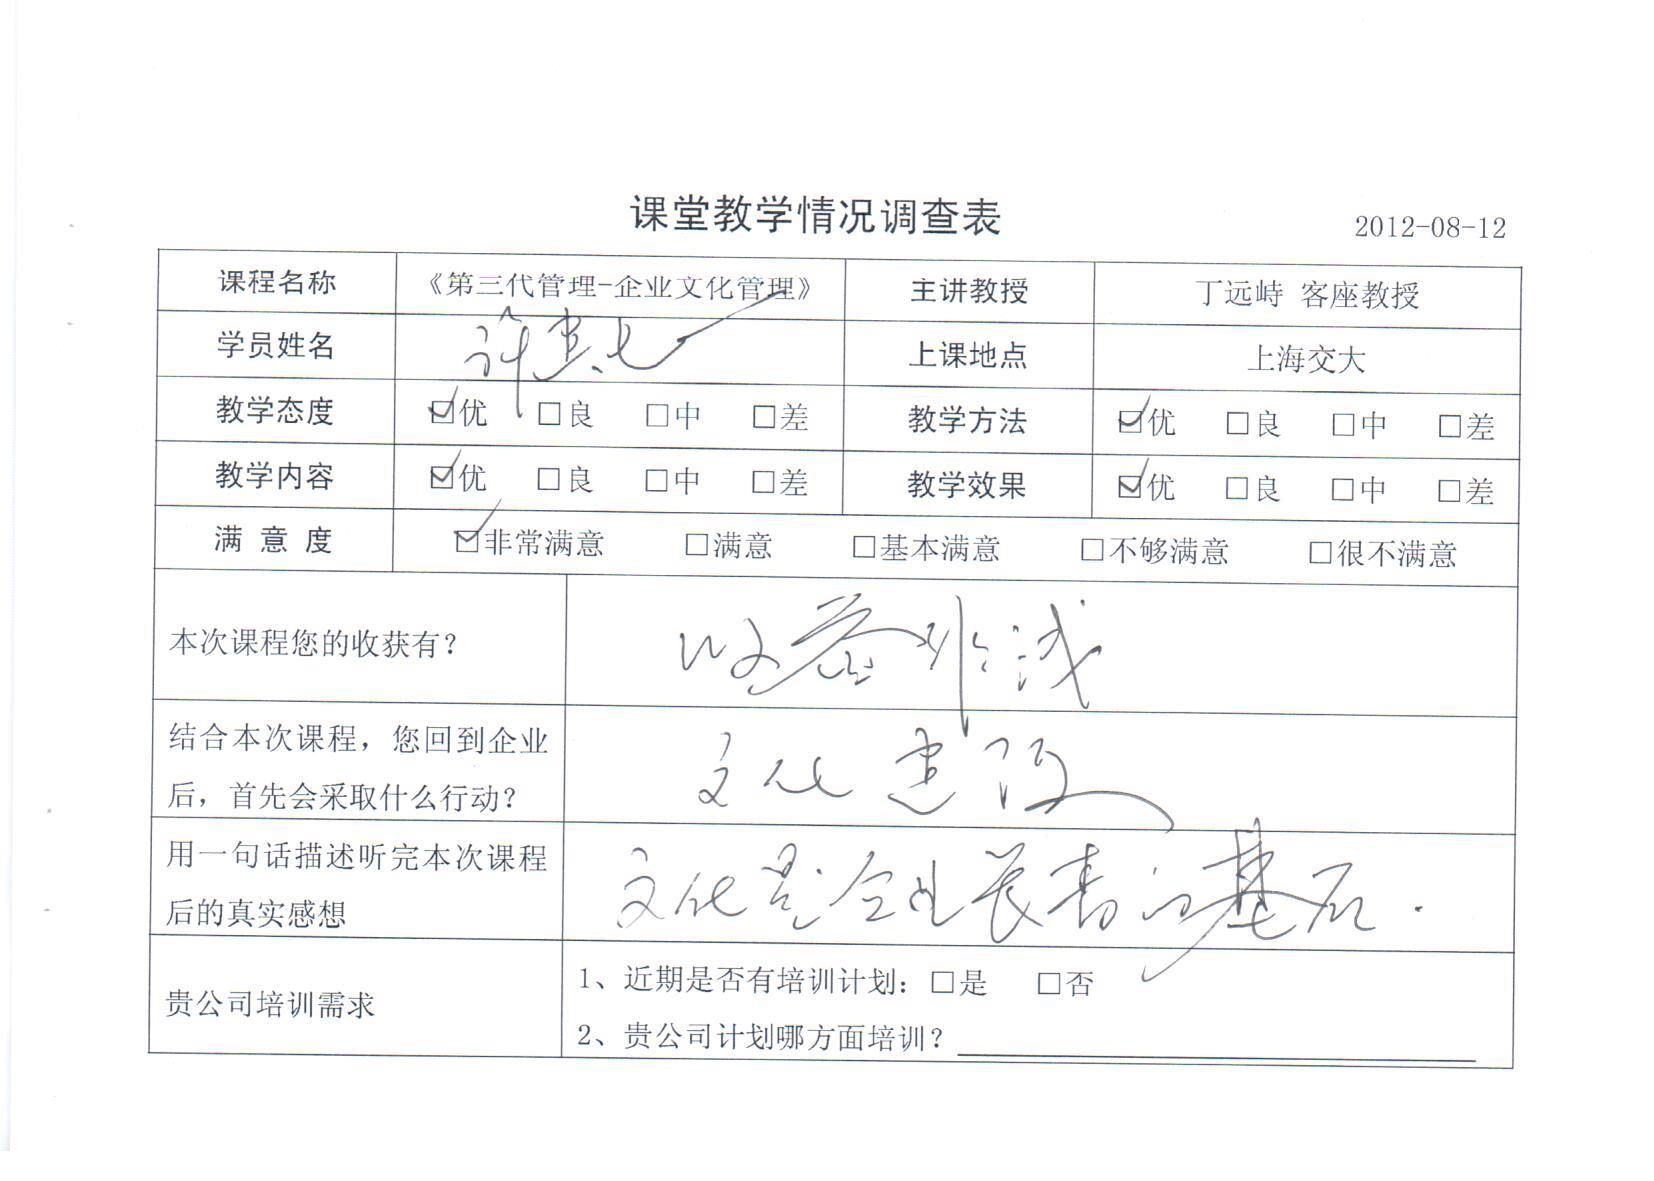 课堂教学情况调查表
2012-08-12
课程名称 《第三代管理-企业文化管理》 主讲教授 丁远峙 客座教授
学员姓名 许 上课地点 上海交大
教学态度 ☑优 □良 □中 □差 教学方法 ☑优 □良 □中 □差
教学内容 ☑优 □良 □中 □差 教学效果 ☑优 □良 □中 □差
满 意 度 ☑非常满意 □满意 □基本满意 □不够满意 □很不满意
本次课程您的收获有? 收益非浅
结合本次课程，您回到企业
后，首先会采取什么行动? 文化建设
用一句话描述听完本次课程
后的真实感想 文化是企业长青的基石.
贵公司培训需求
1、近期是否有培训计划: □是 □否
2、贵公司计划哪方面培训?